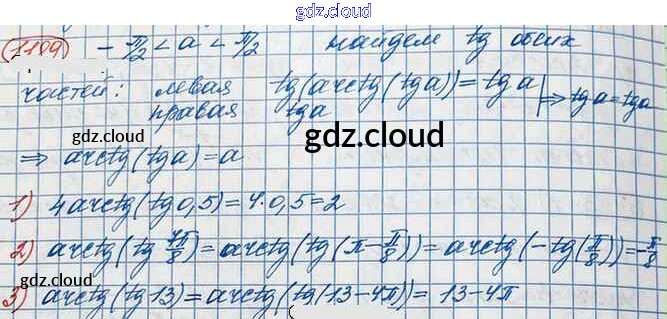 gdz.cloud
1109) -π/2 < a < π/2 найдем tg обеих
частей: левая tg(arctg(tga)) = tg a | ⇒ tga = tga
правая tga
gdz.cloud
gdz.cloud
⇒ arctg(tga) = a
1) 4arctg(tg0,5) = 4·0,5 = 2
2) arctg(tg 7π/8) = arctg(tg(π-π/8)) = arctg(-tg(π/8)) = -π/8
gdz.cloud
gdz.cloud
3) arctg(tg13) = arctg(tg(13-4π)) = 13-4π